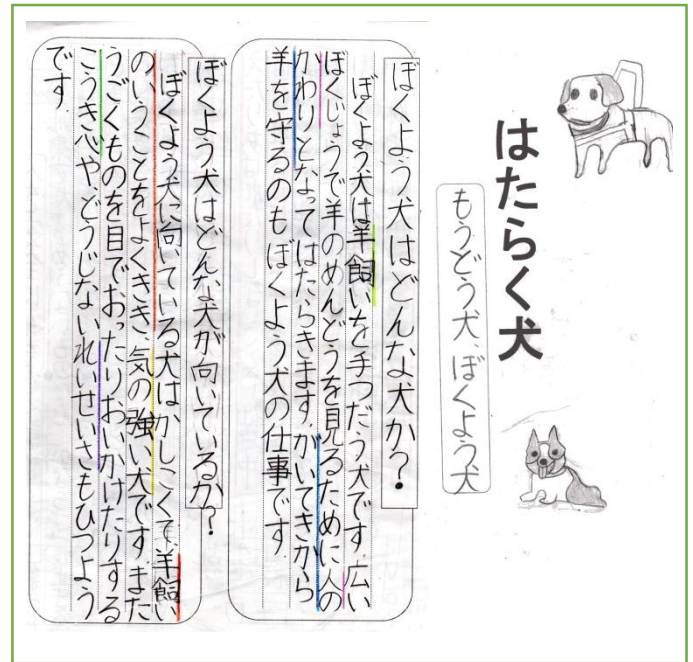 はたらく犬
もうどう犬、ぼくよう犬
ぼくよう犬はどんな犬か?
ぼくよう犬は羊飼いを手つだう犬です。広い
ぼくじょうで羊のめんどうを見るために人の
かわりとなってはたらきます。がいてきから
羊を守るのもぼくよう犬の仕事です。
ぼくよう犬はどんな犬が向いているか?
ぼくよう犬に向いている犬はかしこくて、羊飼い
のいうことをよくきき、気の強い犬です。また
うごくものを目でおったりおいかけたりする
こうき心や、どうじないれいせいさもひつよう
です。